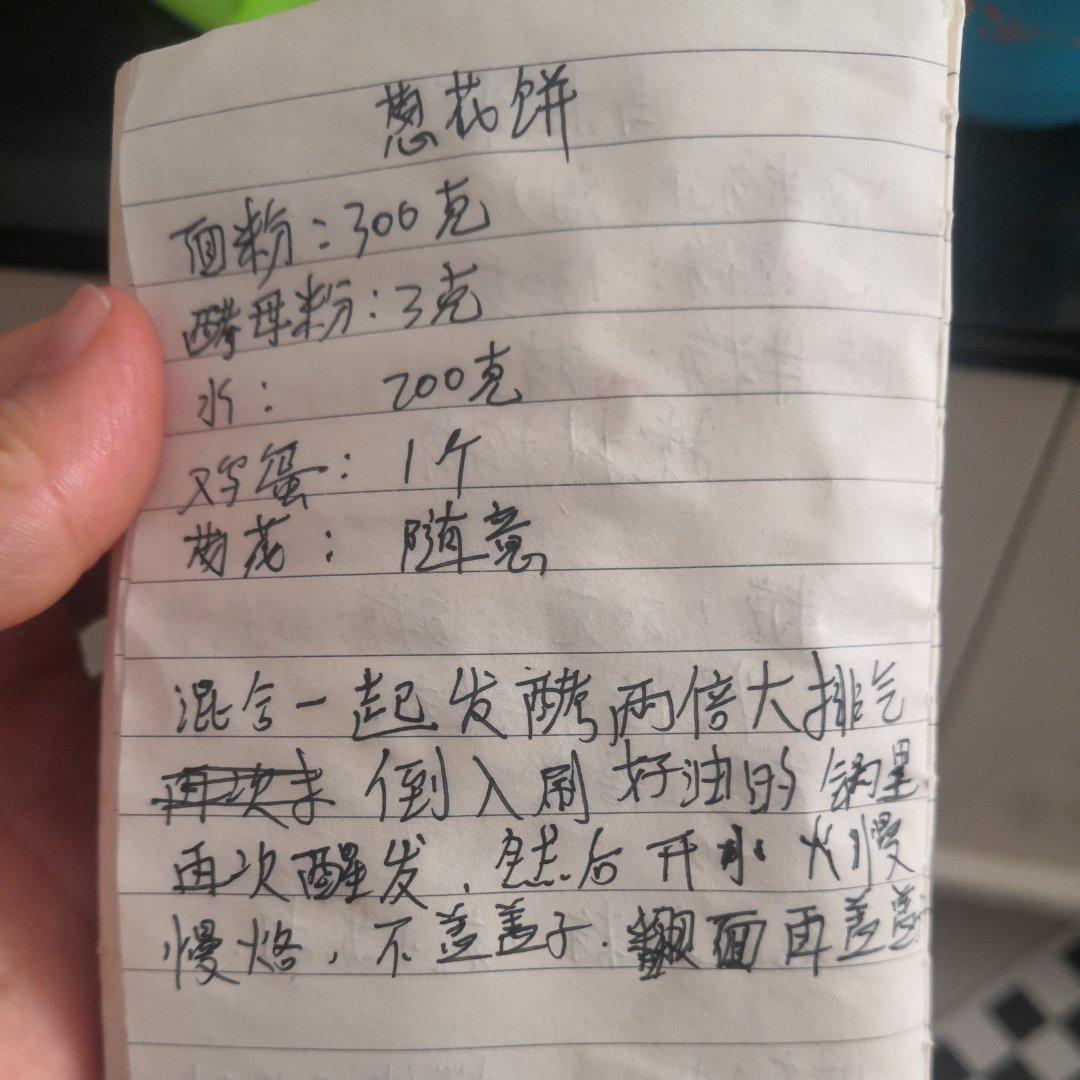 葱花饼
面粉：300克
酵母粉：3克
水： 200克
鸡蛋：1个
葱花：随意
混合一起发酵两倍大排气
倒入刷好油的锅里
再次醒发，然后开小火慢
慢烙，不盖盖子．翻面再盖盖